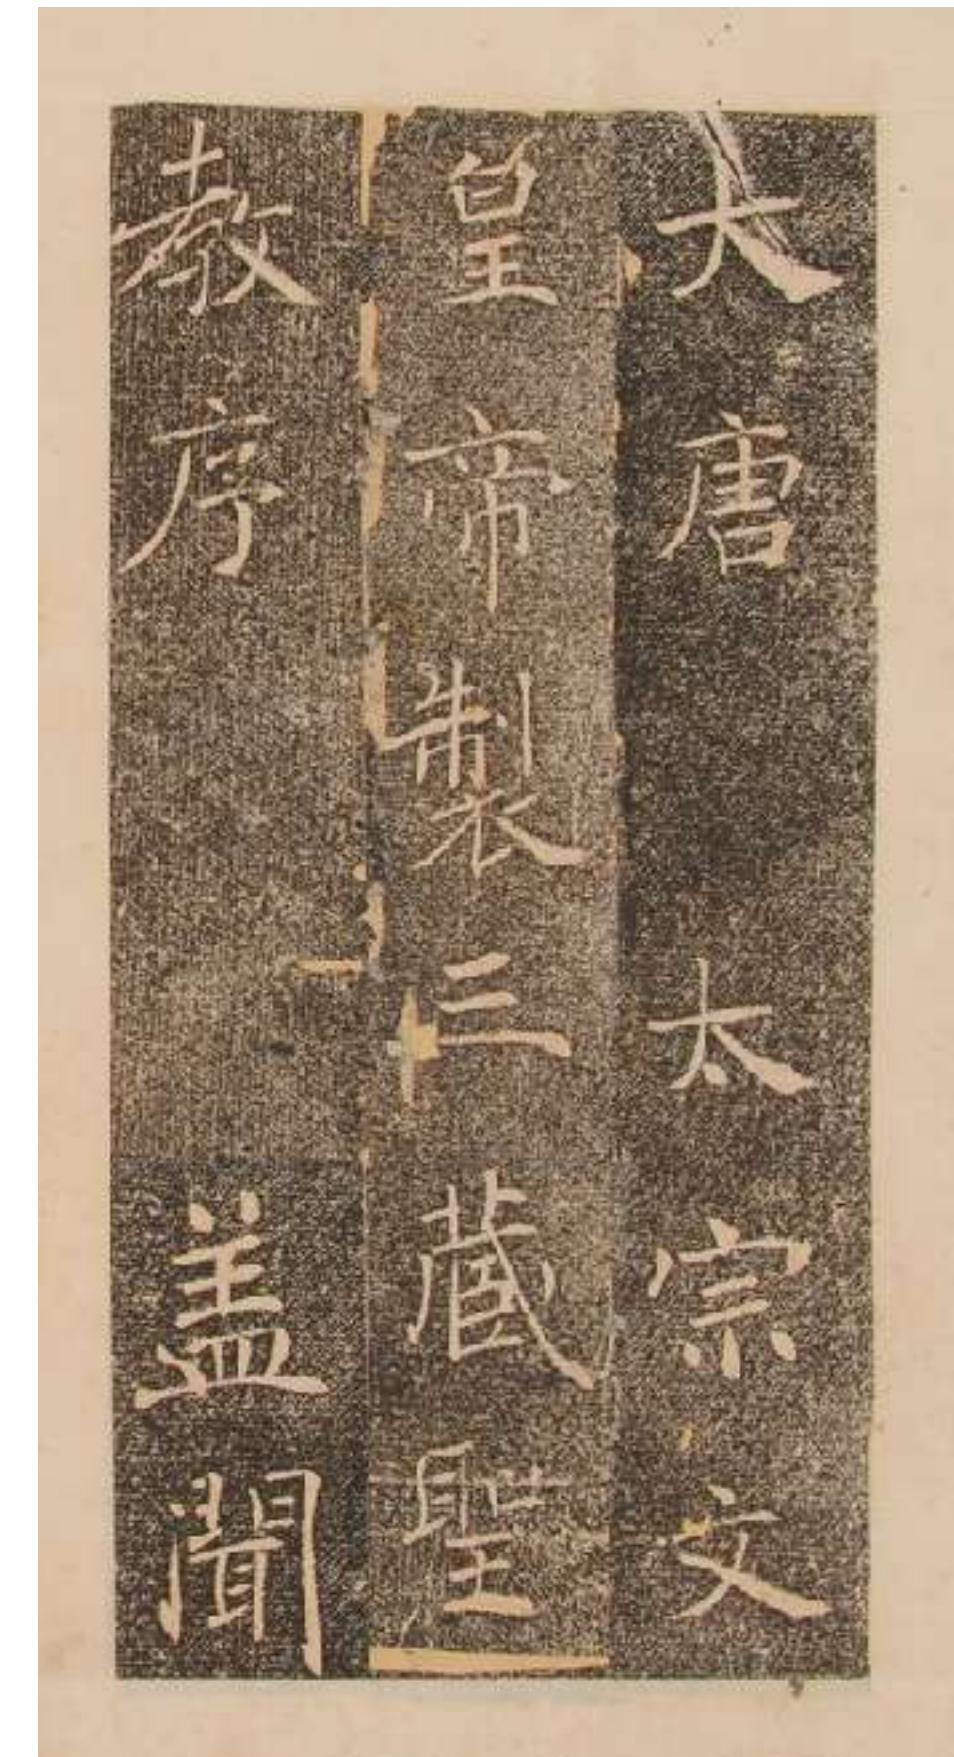 大唐太宗文
皇帝製三藏聖
教序盖聞